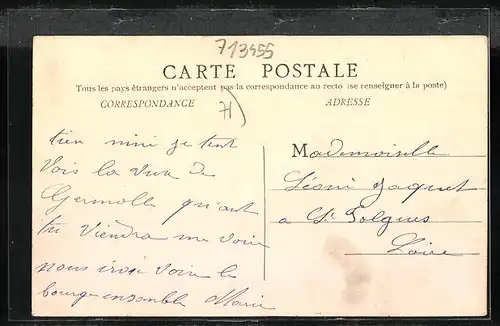 713455
CARTE POSTALE
Tous les pays étrangers n'acceptent pas la correspondance au recto (se renseigner à la poste)
CORRESPONDANCE
ADRESSE
H)
tien mini je tent
vois la vue de
Germolle qu'ant
tu viendra me voir
nous iron voir le
bourg ensemble Marie
Mademoiselle
Léoni Jaquet
a St Polgues
Loire